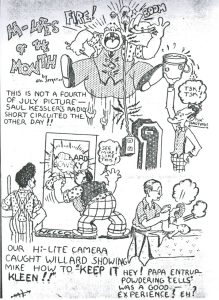 HI-LITES
OF THE
MONTH
FIRE!
BOOM
TSK!
TSK!
THIS IS NOT A FOURTH
OF JULY PICTURE—
SAUL KESSLER'S RADIO
SHORT CIRCUITED THE
OTHER DAY!!
SEE
OUR HI-LITE CAMERA
CAUGHT WILLARD SHOWING
MIKE HOW TO "KEEP IT
KLEEN!!"
HEY! PAPA ENTRUP
POWDERING
WAS A GOOD
EXPERIENCE! EH!